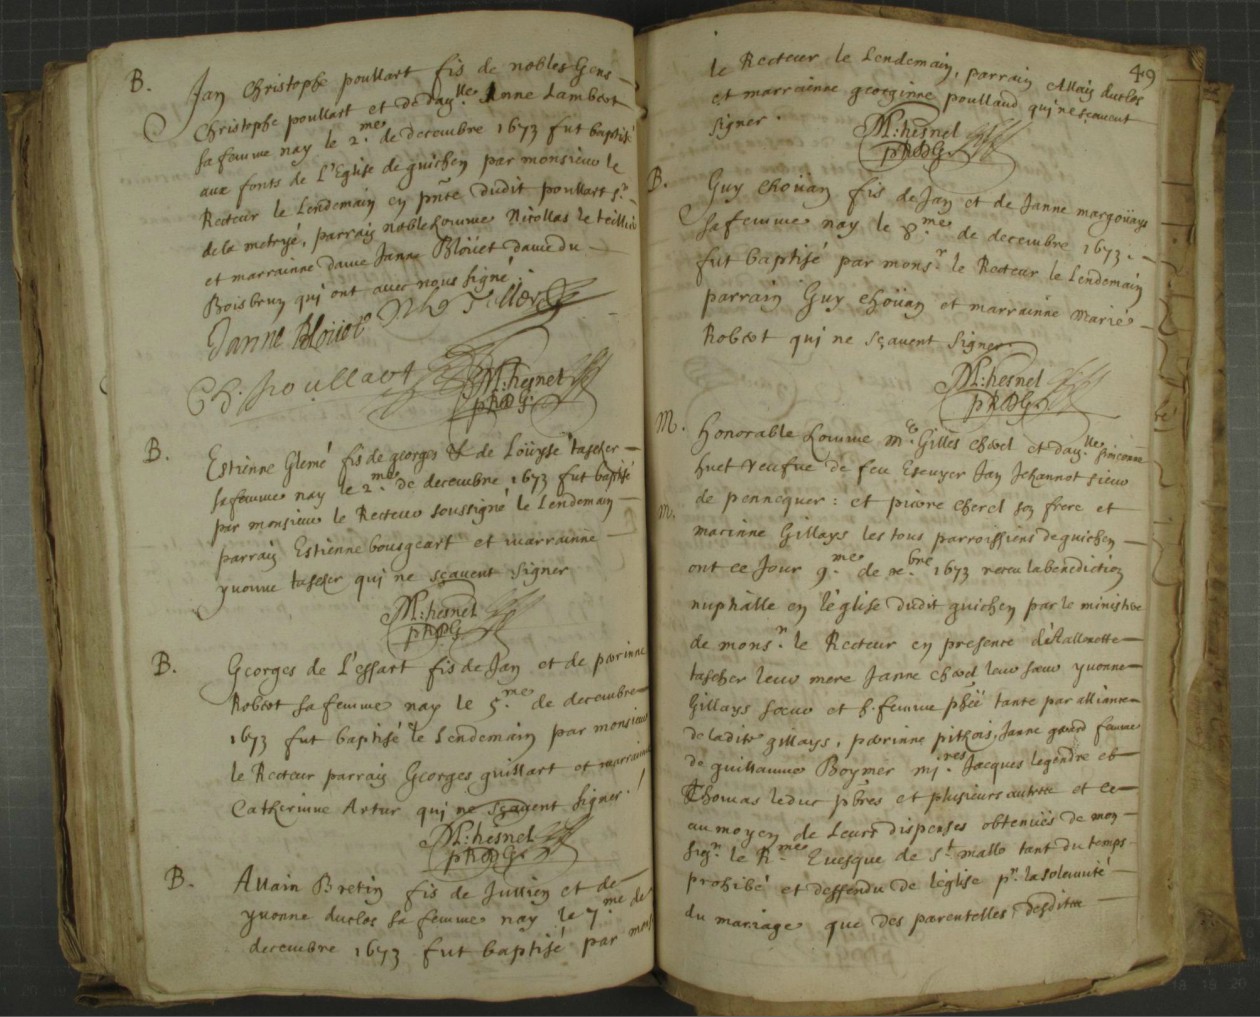 B. Jan Christophe poullart fis de nobles Gens
Christophe poullart et de day.lle Anne Lambert
sa femme nay le 2.me de decembre 1673 fut baptisé
aux fonts de L'Eglise de guichen par monsieur le
Recteur le Lendemain en pnte dudit poullart sr
de la metryé, parrain noble homme Nicollas le tellier
et marrainne dame Janne Bloüet dame du
Boisbrun qui ont avec nous signé.
Janne Bloüet
Ch. Poullart
M: hesnel
pRDG.
B. Estienne Glemé fis de georges & de Loüyse tascher
sa femme nay le 2.me de decembre 1673 fut baptisé
par monsieur le Recteur soussigné le Lendemain
parrain Estienne bousgeart et marrainne
yvonne tascher qui ne sçavent signer
M: hesnel
pRDG
B. Georges de L'essart fis de Jan et de perinne
Robert sa femme nay le 5.me de decembre
1673 fut baptisé le Lendemain par monsieur
le Recteur parrain Georges guillart et marrainne
Catherinne Artur qui ne sçavent signer.
M: hesnel
pRDG.
B. Allain Bretin fis de Jullien et de
yvonne duclos sa femme nay le 7.me de
decembre 1673 fut baptisé par mons
49
le Recteur le Lendemain, parrain Allain duclos
et marrainne georginne poullaud qui ne sçavent
signer.
M: hesnel
pRDG
B. Guy choüan fis de Jan et de Janne margoüays
sa femme nay le 8.me de decembre 1673.
fut baptisé par monsr le Recteur le Lendemain
parrain Guy choüan et marrainne Marie
Robert qui ne sçavent signer
M: hesnel
pRDG.
M. honorable homme Me Gilles cherel et day.lle
huet veufve de feu Escuyer Jan Jehannot sieur
de pennequer: et pierre cherel son frere et
m. marinne Gillays les tous parroissiens de guichen
ont ce Jour 9.me de xbre 1673 receu la benediction
nuptialle en l'église dudit guichen par le ministere
de monsr le Recteur en presence de Stallonette
tascher leur mere Janne cherel leur sœur yvonne
Gillays sœur et tante par alliance
de ladite gillays, perinne pithois, Janne femme
de guillaume Boymer mres Jacques legendre et
Thomas leduc pbres et plusieurs autres et ce
au moyen de Leurs dispenses obtenües de mon
sigr le Rme Evesque de St mallo tant du temps
prohibé et deffendu de léglise pr la solennité
du mariage que des parentelles desdits